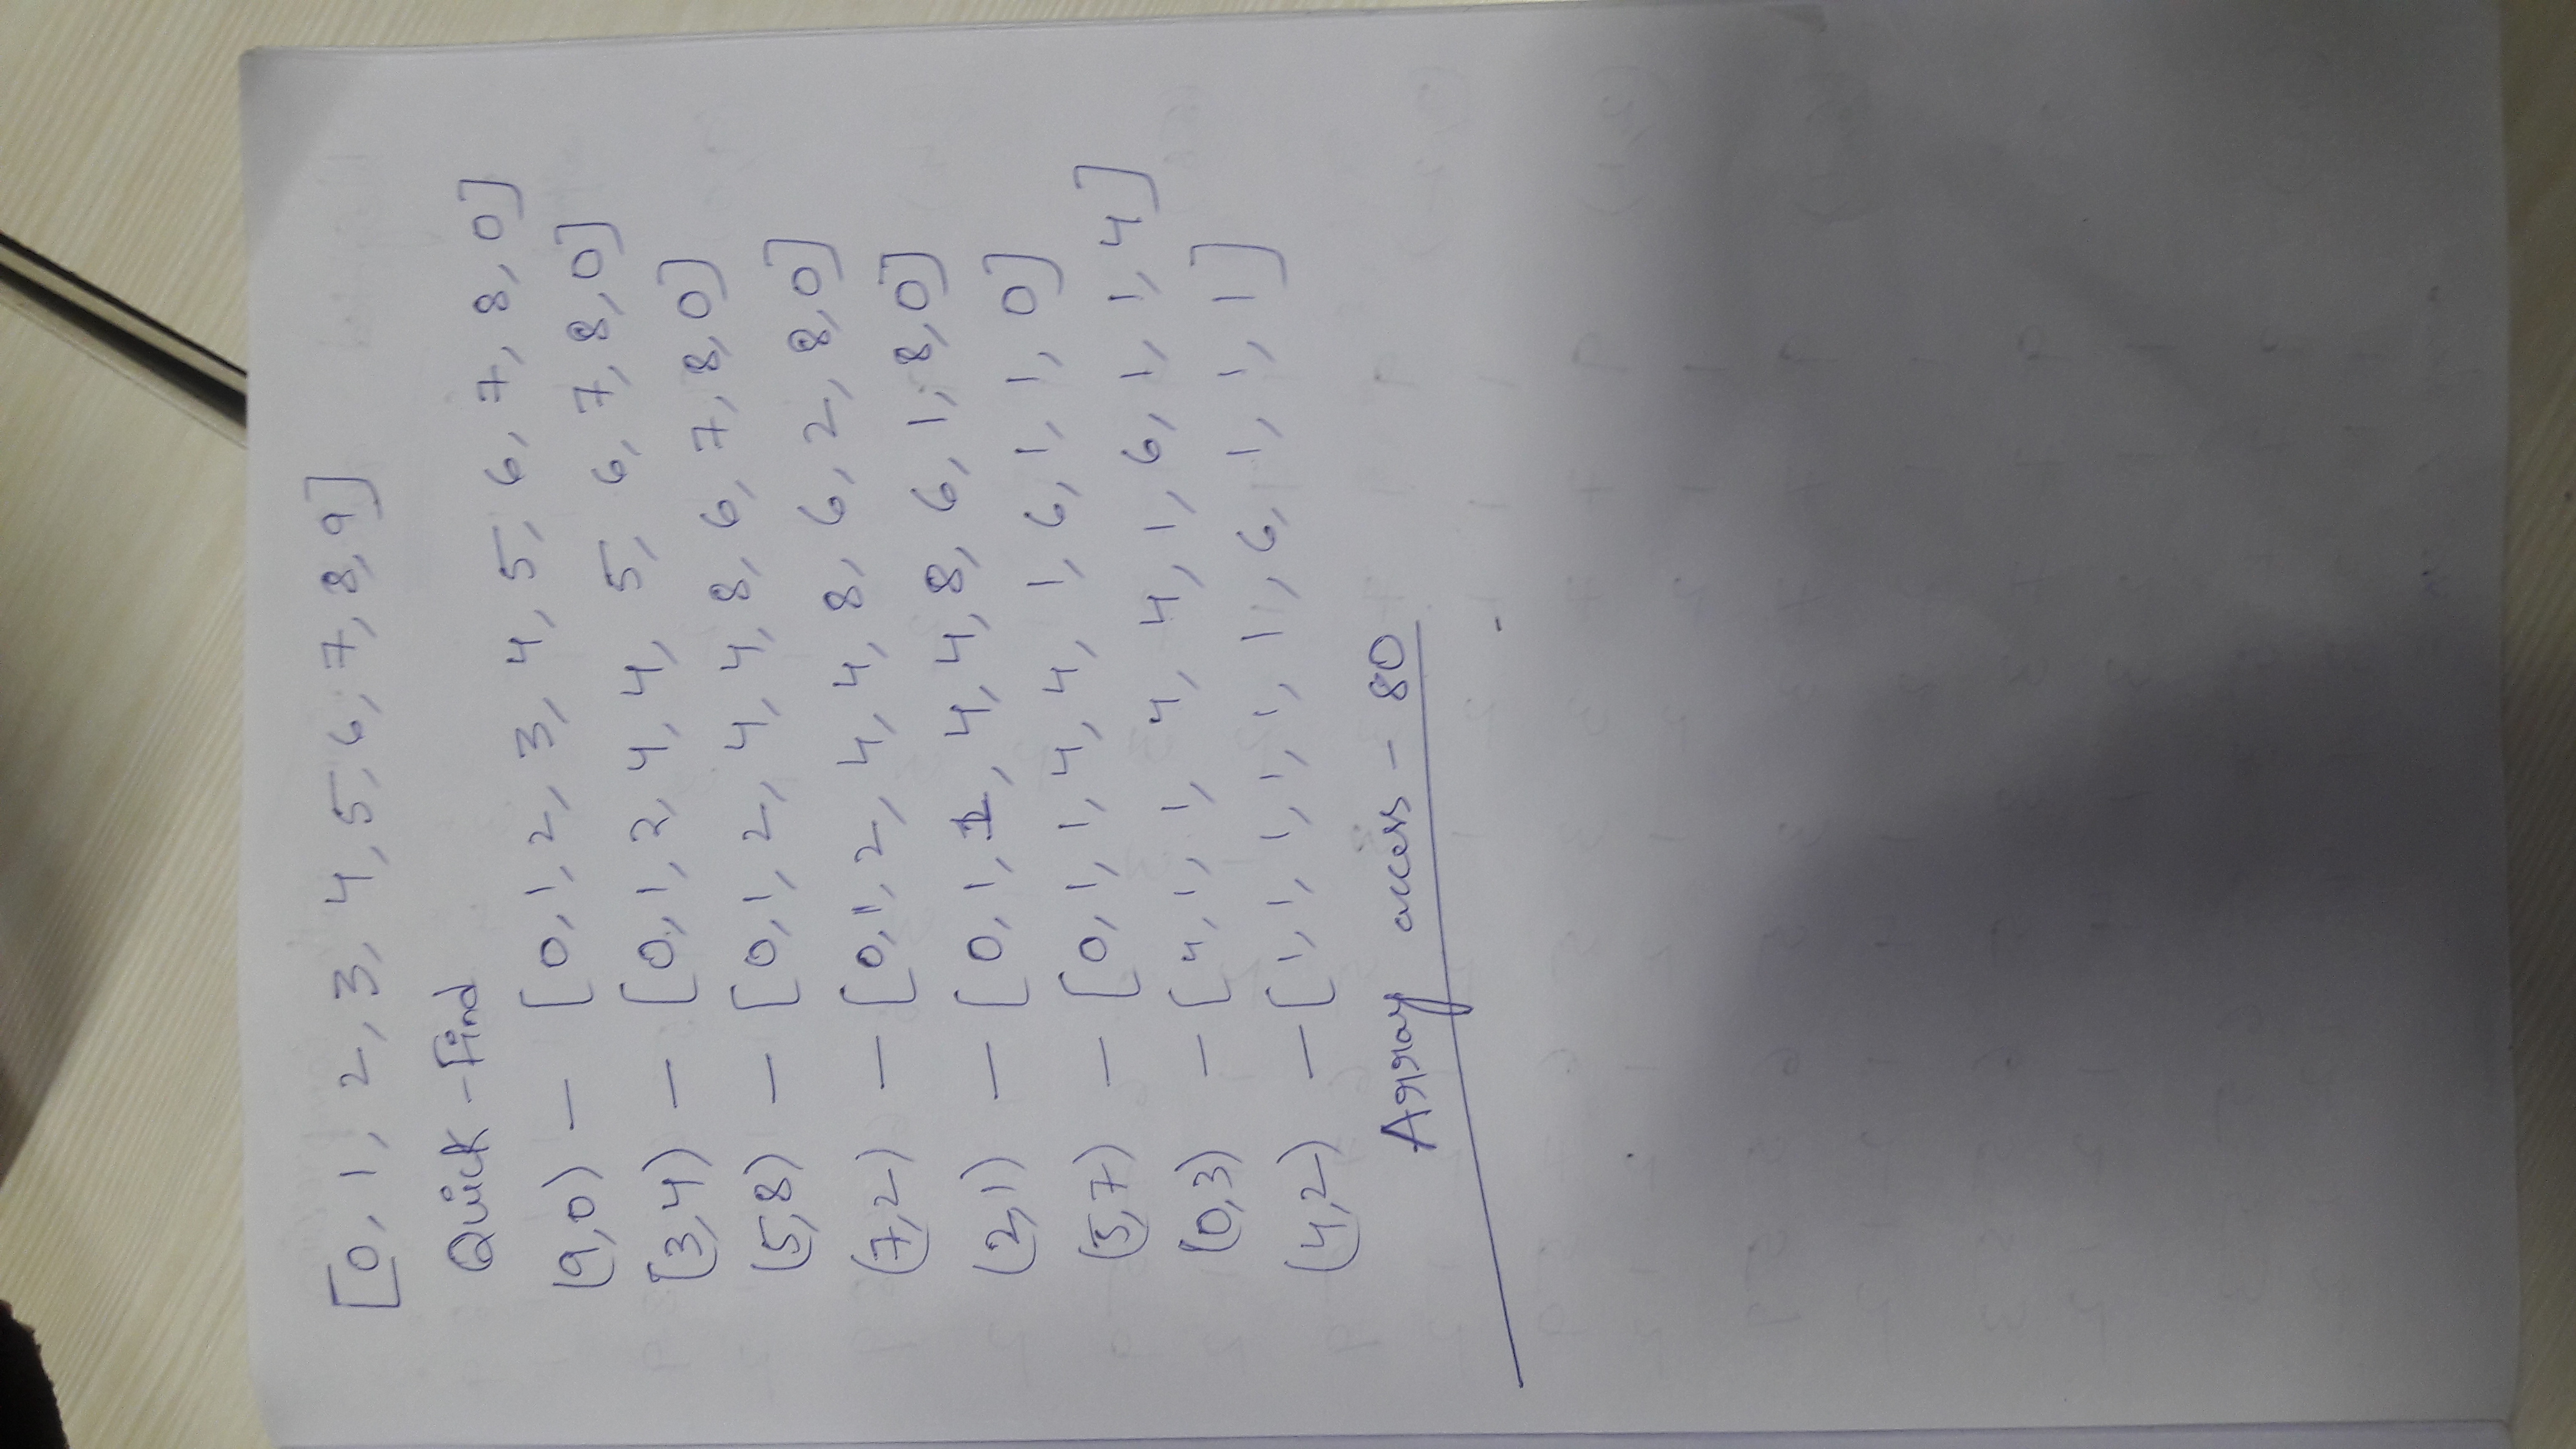 [0, 1, 2, 3, 4, 5, 6, 7, 8, 9]
Quick - Find
(9,0) - [0, 1, 2, 3, 4, 5, 6, 7, 8, 0]
(3,4) - [0, 1, 2, 4, 4, 5, 6, 7, 8, 0]
(5,8) - [0, 1, 2, 4, 4, 8, 6, 7, 8, 0]
(7,2) - [0, 1, 2, 4, 4, 8, 6, 2, 8, 0]
(2,1) - [0, 1, 1, 4, 4, 8, 6, 1, 8, 0]
(5,7) - [0, 1, 1, 4, 4, 1, 6, 1, 1, 0]
(0,3) - [4, 1, 1, 4, 4, 1, 6, 1, 1, 4]
(4,2) - [1, 1, 1, 1, 1, 1, 6, 1, 1, 1]
Array access - 80